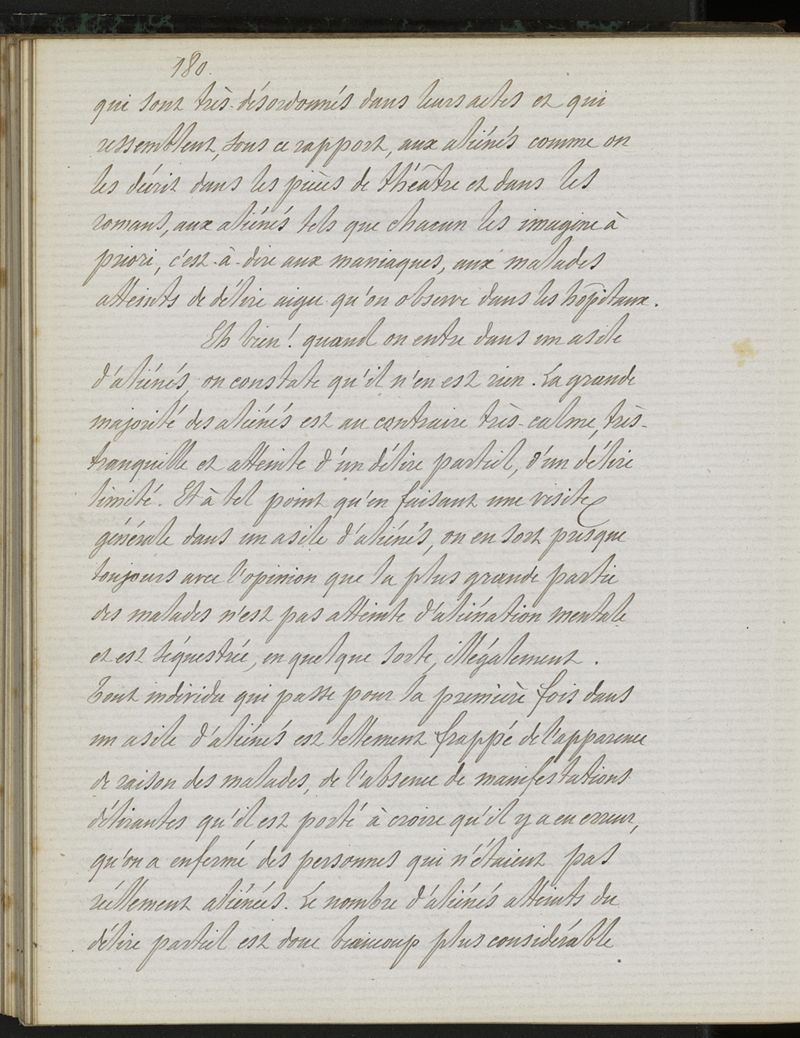 180.
qui sont très-désordonnés dans leurs actes et qui
ressemblent, sous ce rapport, aux aliénés comme on
les décrit dans les pièces de théâtre et dans les
romans, aux aliénés tels que chacun les imagine à
priori, c'est-à-dire aux maniaques, aux malades
atteints de délire aigu qu'on observe dans les hôpitaux.
Eh bien! quand on entre dans un asile
d'aliénés, on constate qu'il n'en est rien. La grande
majorité des aliénés est au contraire très-calme, très-
tranquille et atteinte d'un délire partiel, d'un délire
limité. Et à tel point qu'en faisant une visite
générale dans un asile d'aliénés, on en sort presque
toujours avec l'opinion que la plus grande partie
des malades n'est pas atteinte d'aliénation mentale
et est séquestrée, en quelque sorte, illégalement.
Tout individu qui passe pour la première fois dans
un asile d'aliénés est tellement frappé de l'apparence
de raison des malades, de l'absence de manifestations
délirantes qu'il est porté à croire qu'il y a eu erreur,
qu'on a enfermé des personnes qui n'étaient pas
réellement aliénées. Le nombre d'aliénés atteints du
délire partiel est donc beaucoup plus considérable